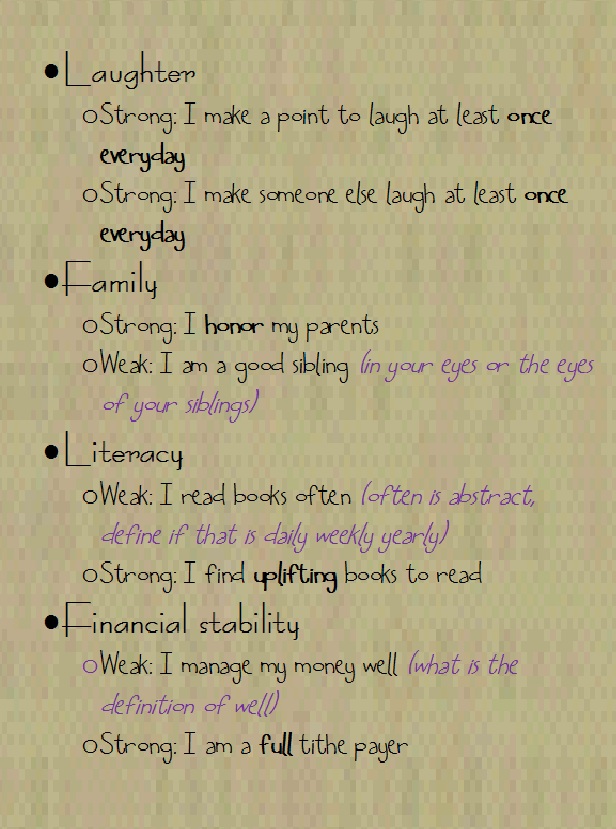 •Laughter
oStrong: I make a point to laugh at least once
everyday
oStrong: I make someone else laugh at least once
everyday
•Family
oStrong: I honor my parents
oWeak: I am a good sibling (in your eyes or the eyes
of your siblings)
•Literacy
oWeak: I read books often (often is abstract,
define if that is daily weekly yearly)
oStrong: I find uplifting books to read
•Financial stability
oWeak: I manage my money well (what is the
definition of well)
oStrong: I am a full tithe payer